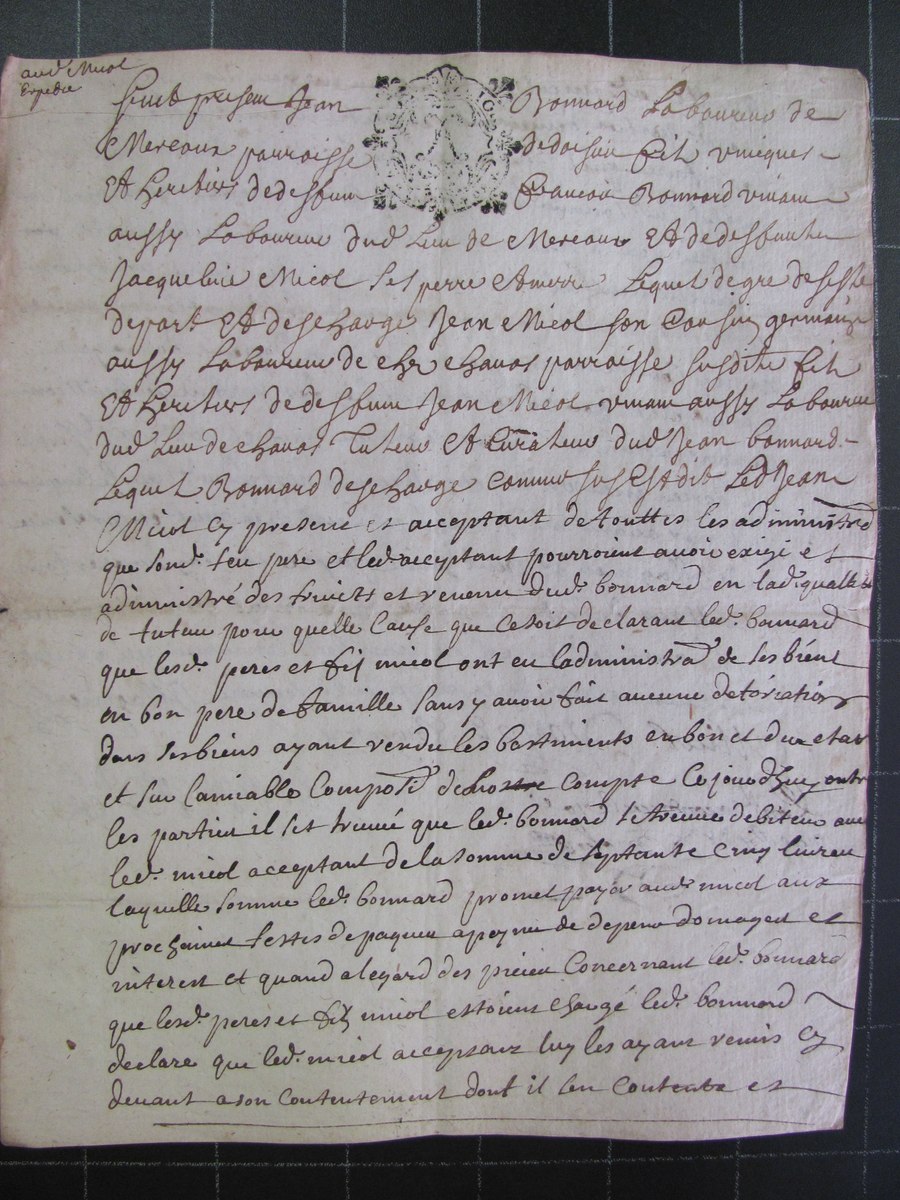 aud. Micol
Expedie
fust present Jean Bonnard Laboureur de
Mereaux parroisse dedoisin fit unicques
Et heretiers dedesfunt francois Bonnard vivant
aussy Laboureur dud. Lieu de Mereaux Et dedesfunte
Jacqueline Micol ses perre Et merre Lequel de gre
depart Et descharge Jean Micol son Cousin germain
aussy Laboureur de chavas parroisse susdite fit
Et heretiers dedesfunt Jean Micol vivant aussy Laboureur
dud. Lieu de chavas Tuteur Et Curateur dud. Jean bonnard
Lequel Bonnard descharge Comme sus Est dit Led. Jean
Micol cy present et acceptant de touttes les administraõ
que sond. feu pere et led. acceptant pourroient avoir exigé et
administré des fruicts et revenu dud. bonnard en lad. quallité
de tuteur pour quelle Cause que ce soit declarant led. bonnard
que lesd. peres et fils micol ont eu ladministraõ de ses biens
en bon pere de famille sans y avoir fait aucune detoriation
dans ses biens ayant rendu les bastiments en bon et due etat
et sur lamiable Compoṡe de compte Ce jourdhuy entre
les parties il sest treuvé que led. bonnard se treuve debiteur aud.
led. micol acceptant de la somme de septante cinq livres
laquelle somme led. bonnard promet payer aud. micol aux
prochaines festes de paques a peyne de depens domages et
interest et quand a legard des pieces Concernant led. bonnard
que lesd. peres et fils micol estoient chargé led. bonnard
declare que led. micol acceptant luy les ayant remis cy
devant a son Contentement dont il sen Contente et